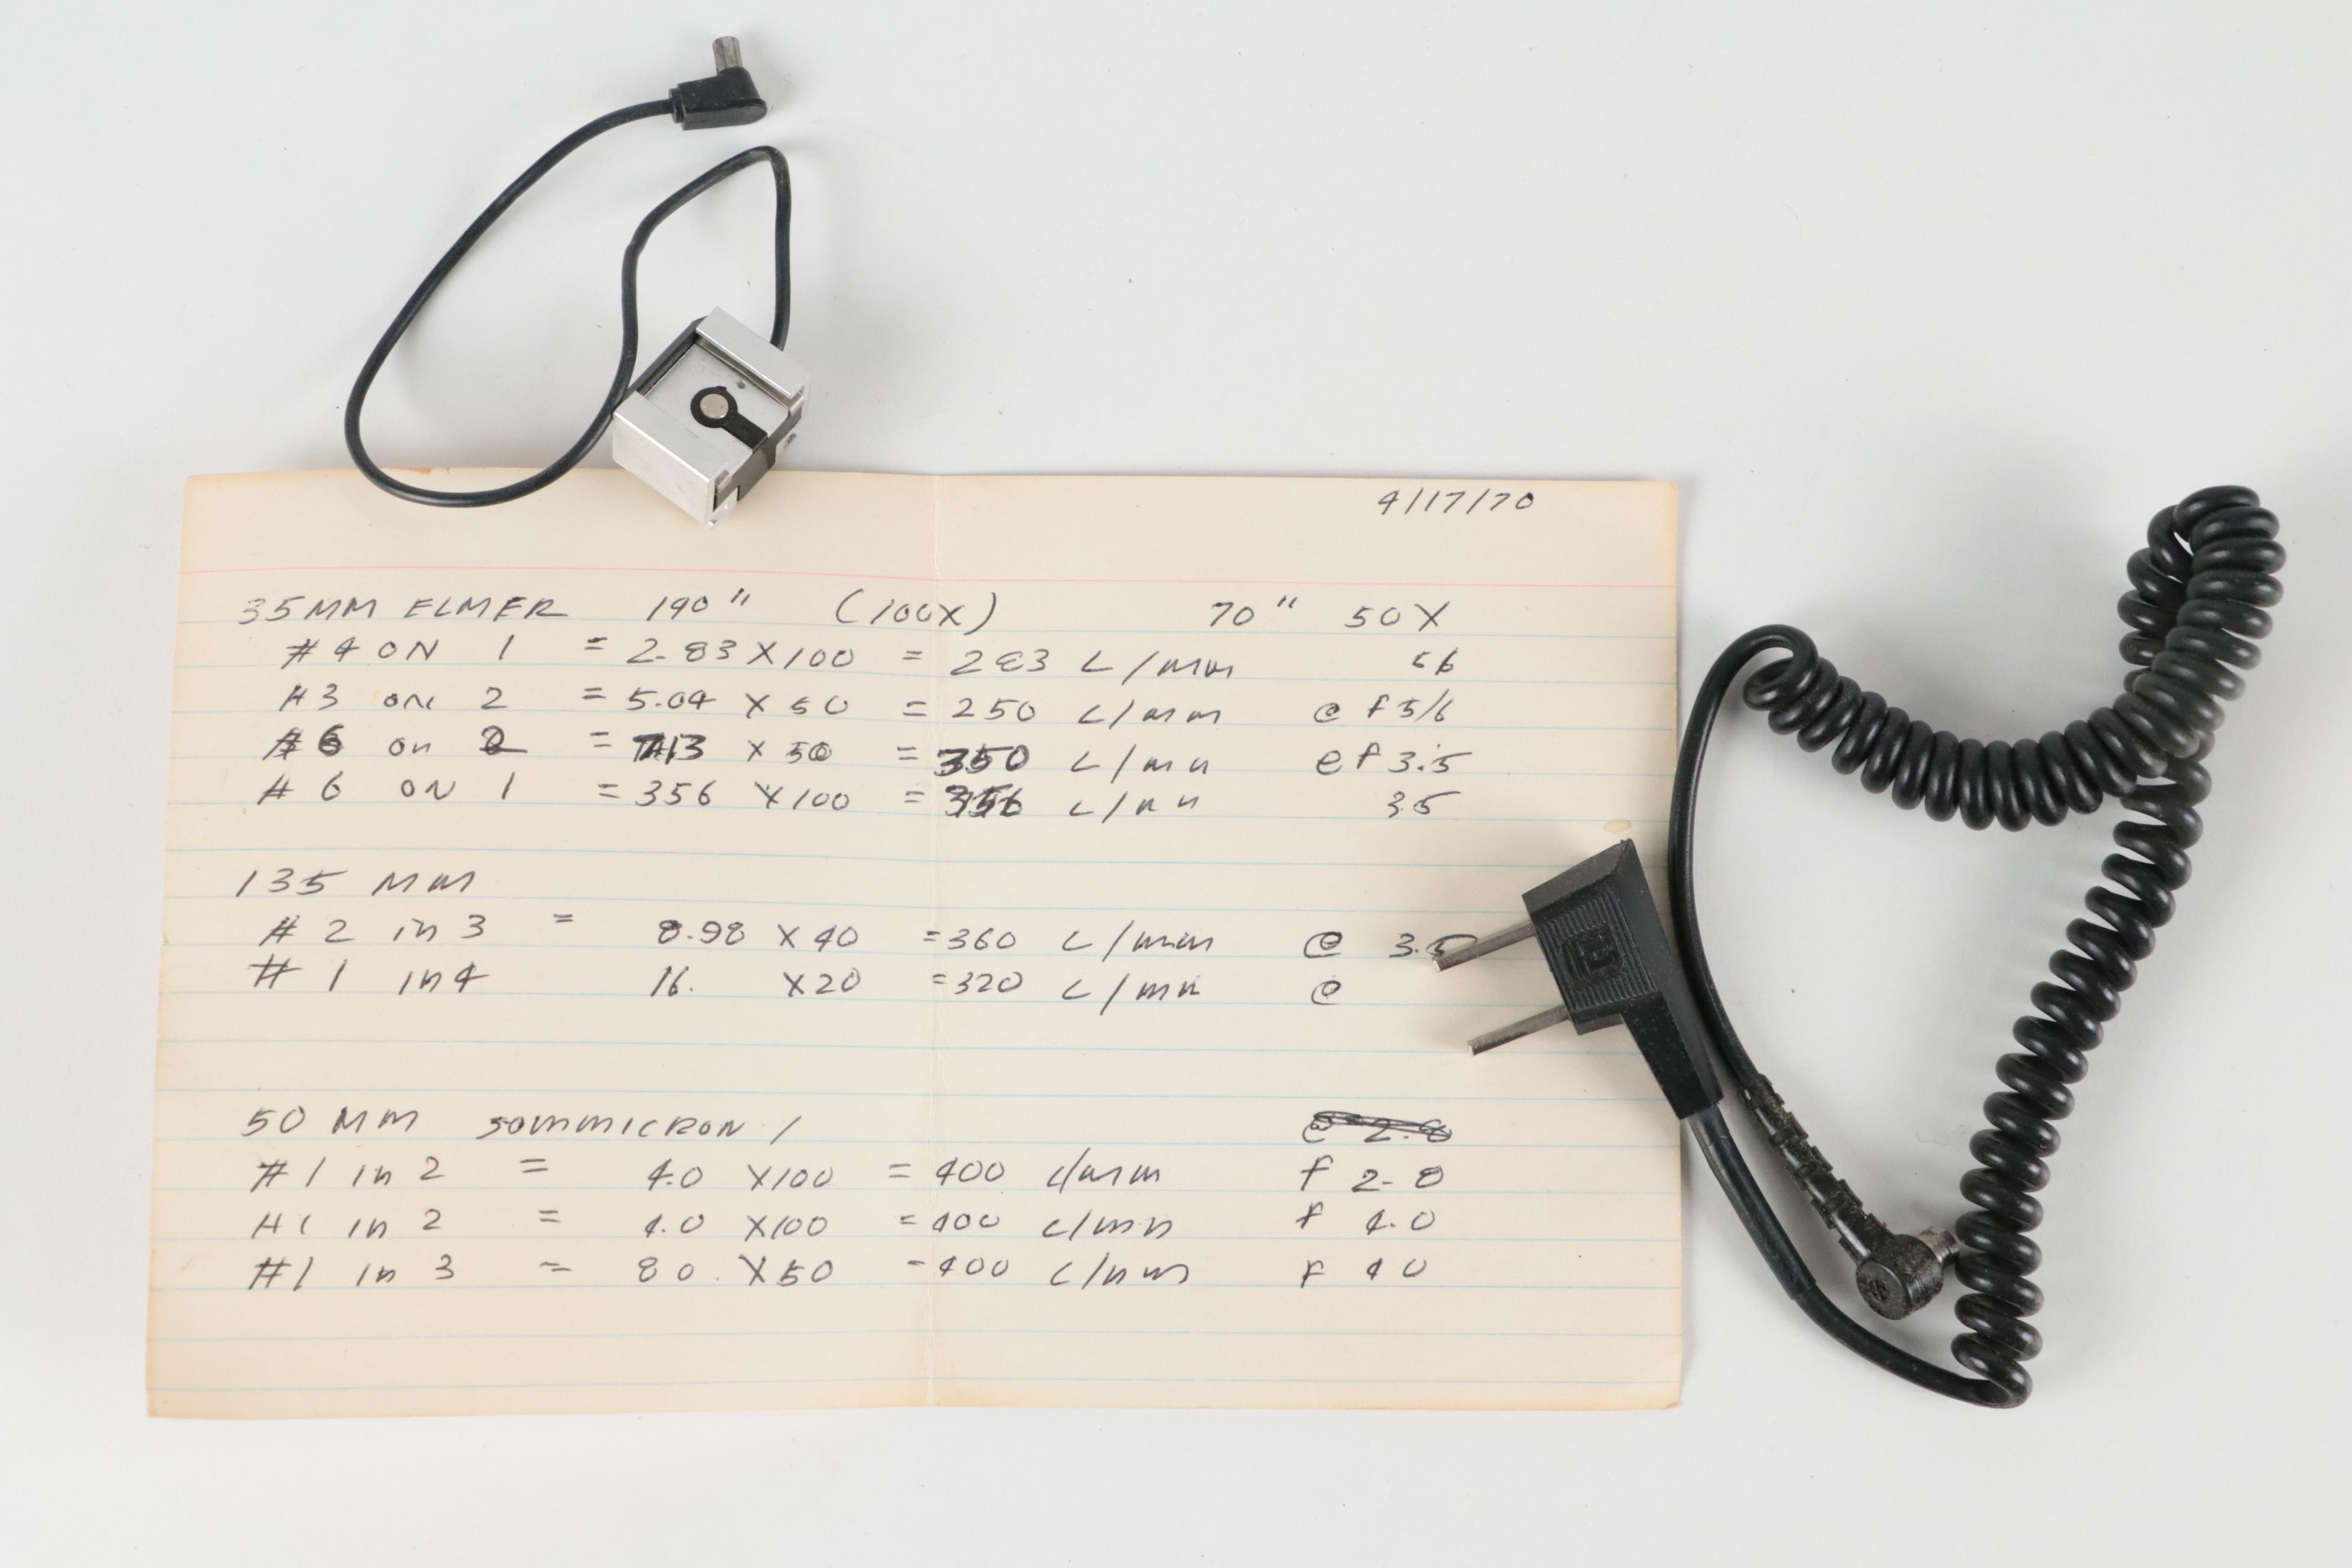 4/17/70
35MM ELMER 190" (100X) 70" 50X
#4 ON 1 = 2.83 X 100 = 283 L/mm 56
#3 on 2 = 5.04 X 50 = 250 L/mm @ f 5/6
#6 on 2 = 7.13 x 50 = 350 L/mm @ f 3.5
#6 ON 1 = 356 X100 = 356 L/mm 3.5
135 MM
#2 in 3 = 8.98 X 40 = 360 L/mm @ 3.5
#1 in 4 16. X20 = 320 L/mm @
50 MM SOMMICRON /
@ 2.8
#1 in 2 = 4.0 X100 = 400 L/mm f 2.8
#1 in 2 = 4.0 X100 = 400 L/mm f 4.0
#1 in 3 = 80. X50 = 400 L/mm F 40